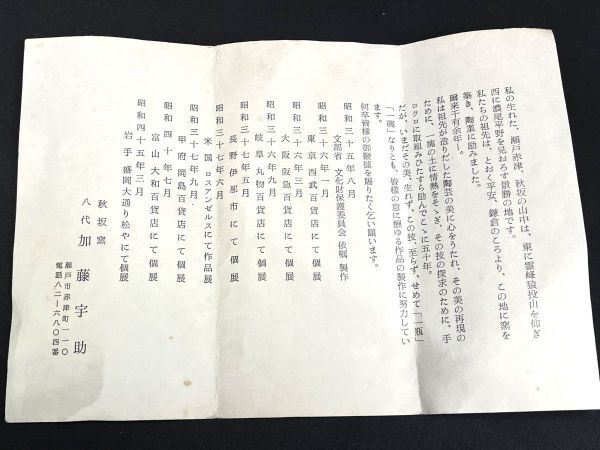 私の生れた、瀬戸赤津、秋坂の山中は、東に霊峰猿投山を仰ぎ
西に濃尾平野を見おろす景勝の地です。
私たちの祖先は、とおく平安、鎌倉のころより、この地に窯を
築き、陶業に励みました。
爾来千有余年ー。
私は祖先が造りだした陶芸の美に心をうたれ、その美の再現の
ために、一塊の土に情熱をそゝぎ、その技の探求のために、手
ロクロに取組みひたすら励んでこゝに五十年。
だが、いまだその美、生れず、この技、至らず、せめて「一瓶」
「一碗」なりとも、皆様の意に酬ゆる作品の製作に努力してい
ます。
何卒皆様の御鞭撻を賜りたく乞い願います。
昭和三十五年八月
文部省 文化財保護委員会 依嘱 製作
昭和三十六年一月
東京 西武百貨店にて個展
昭和三十六年三月
大阪 阪急百貨店にて個展
昭和三十六年九月
岐阜 丸物百貨店にて個展
昭和三十七年五月
長野 伊那市にて個展
昭和三十七年六月
米国 ロスアンゼルスにて作品展
昭和三十七年九月
甲府 岡島百貨店にて個展
昭和四十年七月
富山 大和百貨店にて個展
昭和四十五年三月
岩手 盛岡大通り松やにて個展
秋坂窯
八代 加藤宇助
瀬戸市赤津町一一〇
電話八二ー六八〇四番